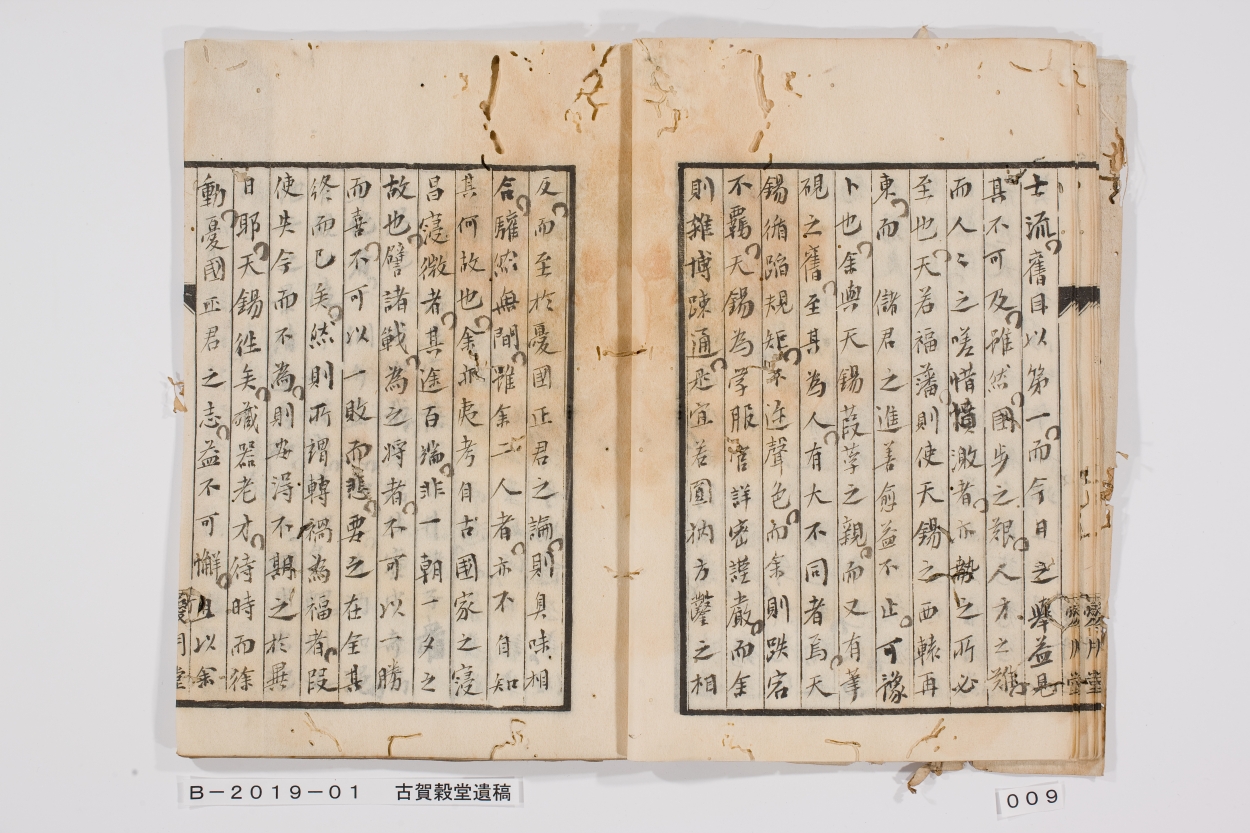 士流舊目以第一而今日之舉益見
其不可及雖然國步之艱人才之難
而人々之嗟惜憤激者亦勢之所必
至也天若福藩則使天錫之西轅再
東而儲君之進善愈益不止可豫
卜也余與天錫葭莩之親而又有筆
硯之舊至其為人有大不同者焉天
錫循蹈規矩不近聲色而余則跌宕
不羈天錫為学服官詳密謹嚴而余
則雜博踈通應宜若圓枘方鑿之相
反而至於憂國正君之論則臭味相
合驩然無間雖余二人者亦不自知
其何故也余亦嘗考自古國家之寖
昌寖微者其途百端非一朝一夕之
故也譬諸戦為之将者不可以一勝
而喜不可以一敗而悲要之在全其
終而已矣然則所謂轉禍為福者叚
使失今而不為則安得不期之於異
日耶天錫徃矣蔵器老才待時而徐
動憂國正君之志益不可懈且以余
愛月堂
愛月堂
B－2019－01　古賀穀堂遺稿
009